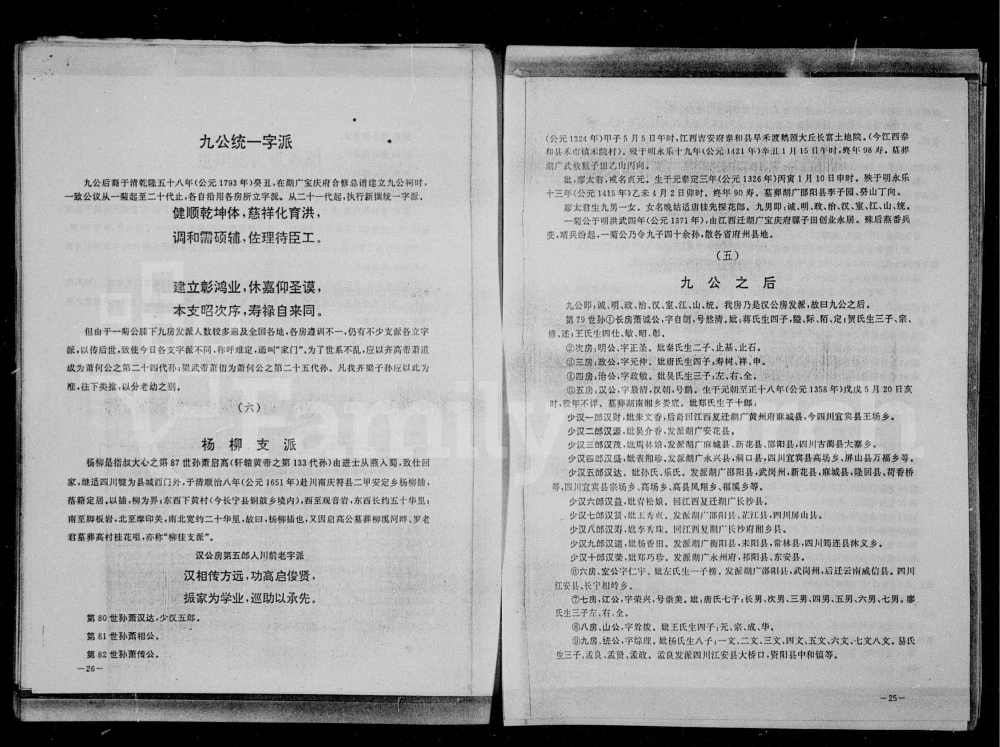 九公统一字派
九公后裔于清乾隆五十八年(公元 1793 年)癸丑,在湖广宝庆府合修总谱建立九公祠时,
一致公议从一菊起至二十代止,各自沿用各房所立字派。从二十一代起,执行新撰统一字派。
健顺乾坤体,慈祥化育洪,
调和需硕辅,佐理待臣工。
建立彰鸿业,休嘉仰圣谟,
本支昭次序,寿禄自来同。
但由于一菊公膝下九房发派人数较多遍及全国各地,各房遵训不一,仍有不少支派各立字
派,以传后世,致使今日各支字派不同,称呼难定,通叫“家门”。为了世系不乱,应以齐高帝萧道
成为萧何公之第二十四代孙;梁武帝萧衍为萧何公之第二十五代孙。凡我齐梁子孙应以此为
准,往下类推,以分老幼之别。
(六)
杨柳支派
杨柳是指叔大心之第 87 世孙萧启高(轩辕黄帝之第 133 代孙)由进士从燕入蜀,致仕回
家,继适四川犍为县城西门外,于清顺治八年(公元 1651 年)赴川南庆符县二甲安定乡杨柳插,
落籍定居。以插,柳为界,东西下黄村(今长宁县铜鼓乡境内),西至观音岩,东西长约五十华里;
南至脚板岩,北至摩印关,南北宽约二十华里,故曰,杨柳插也,又因启高公墓葬柳溪河畔、罗老
君墓葬高村桂花咀,亦称“柳桂支派”。
汉公房第五郎人川前老字派
汉相传方远,功高启俊贤,
振家为学业,巡助以承先。
第 80 世孙萧汉达,少汉五郎。
第 81 世孙萧相公。
第 82 世孙萧传公。
—26—
(公元 1324 年)甲子 5 月 5 日午时,江西吉安府泰和县早禾渡鹅颈大丘长富土地院。(今江西泰
和县禾市镇禾院村)。殁于明永乐十九年(公元 1421 年)辛丑 1 月 15 日午时,终年 98 寿。墓葬
湖广武攸猴子田乙山丙向。
妣,廖太君,戒名贞元。生于元泰定三年(公元 1326 年)丙寅 1 月 10 日申时。殁于明永乐
十三年(公元 1415 年)乙未 4 月 2 日卯时。终年 90 寿。墓葬湖广邵阳县李子园、癸山丁向。
廖太君生九男一女。女名晚姑适唐桂先探花郎。九男是:诚、明、政、治、汉、室、江、山、统。
一菊公于明洪武四年(公元 1371 年),由江西迁湖广宝庆府骡子田创业永居。殊后燕番兵
变,靖兵纷起,一菊公乃令九子四十余孙,散各省府州县地。
(五)
九公之后
九公即:诚、明、政、治、汉、室、江、山、统。我房乃是汉公房发派,故曰九公之后。
第 79 世孙①长房萧诚公,字自朗,号然清。妣:蒋氏生四子,隘、际、陌、定;贺氏生三子、宗、
修、述;王氏生四仕、敏、昭、彰。
②次房;明公、字正圣。妣秦氏生二子、止基、止石。
③三房;政公、字元仲。妣唐氏生四子:寿树、祥、申。
④四房;治公、字政敏。妣吴氏生三子:左、右、全。
⑤五房;汉公、字晨猗、汉朝、号鹤。生于元朝至正十八年(公元 1358 年)戊戌 5 月 20 日亥
时,殁年不详。墓葬湖南湘乡娄底。妣郑氏生子十郎:
少汉一郎汉财,妣朱文香,后裔回江西夏迁湖广黄州府麻城县,今四川宜宾县王场乡。
少汉二郎汉源,妣吴介香,发派湖广安花县。
少汉三郎汉茂,妣周林娘,发派湖广麻城县、新花县、邵阳县,四川古蔺县大寨乡。
少汉四郎汉盛,妣袁相珍,发派湖广永兴县,洞口县,四川宜宾县高场乡、屏山县万福乡等。
少汉五郎汉达。妣孙氏、乐氏。发派湖广邵阳县,武岗州,新花县,麻城县,隆回县、荷香桥
等,四川宜宾县宗场乡、高场乡、高县凤翔乡、福溪乡等。
少汉六郎汉益,妣青松娘。回江西夏迁湖广长沙县。
少汉七郎汉贤,妣王秀贞。发派湖广邵阳县、芷江县,四川屏山县。
少汉八郎汉寿,妣李秀珠。回江西复湖广长沙府湘乡县。
少汉九郎汉道,妣杨香田。发派湖广衡阳县,耒阳县,常林县,四川筠连县沐义乡。
少汉十郎汉荣,妣邓巧珍。发派湖广永州府,祁阳县、东安县。
⑥六房、室公字仁宇。妣左氏生一子榜。发派湖广邵阳县,武岗州,后迁云南威信县。四川
江安县、长宁相岭乡。
⑦七房,江公,字荣兴,号崇美。妣:唐氏七子;长男、次男、三男、四男、五男、六男、七男。廖
氏生三子左、右、全。
⑧八房、山公,字耸拔。妣王氏生四子;元、宗、成、华。
⑨九房、统公,字综理。妣杨氏生八子;一文、二文、三文、四文、五文、六文、七文八文。易氏
生三子,孟良、孟贤、孟政。孟良发派四川江安县大桥口,资阳县中和镇等。
—25—